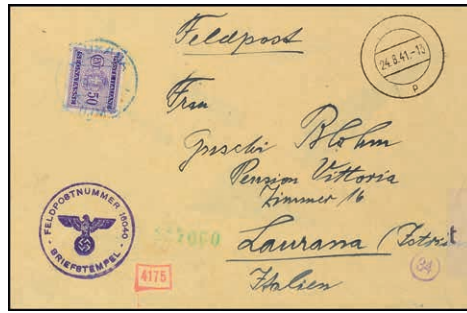 Feldpost
50
24.8.41.-13
Frau
Guschi Blohm
Pension Vittoria
Zimmer 16
Laurana
Italien
FELDPOSTNUMMER 18040
BRIEFSTEMPEL
4175
34